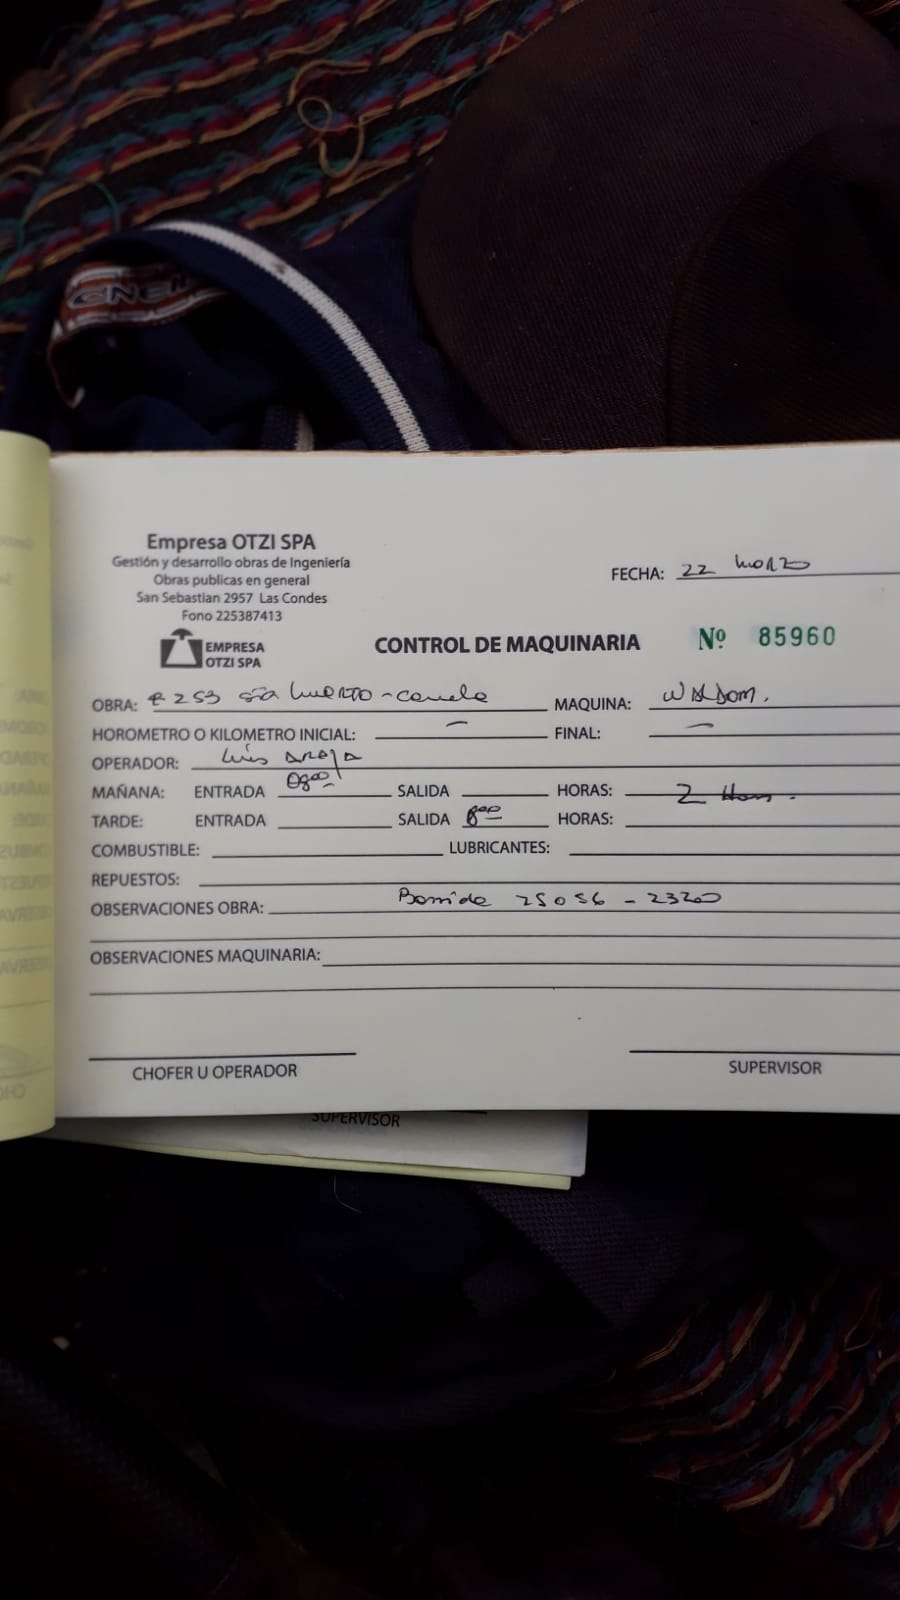 Empresa OTZI SPA
Gestión y desarrollo obras de Ingeniería
Obras publicas en general
San Sebastian 2957 Las Condes
Fono 225387413
EMPRESA
OTZI SPA
FECHA: 22 Marzo
CONTROL DE MAQUINARIA Nº 85960
OBRA: 253 Huerto - Canela MAQUINA:
HOROMETRO O KILOMETRO INICIAL: — FINAL: —
OPERADOR: Luis Araya
MAÑANA: ENTRADA 08⁰⁰ SALIDA HORAS: 2 Horas.
TARDE: ENTRADA SALIDA 8⁰⁰ HORAS:
COMBUSTIBLE: LUBRICANTES:
REPUESTOS:
OBSERVACIONES OBRA: Barrido 25056 - 23200
OBSERVACIONES MAQUINARIA:
CHOFER U OPERADOR SUPERVISOR
SUPERVISOR